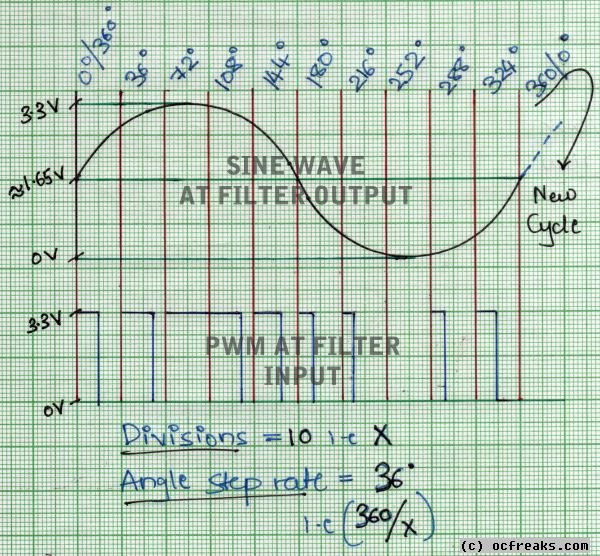 0°/360°
36°
72°
108°
144°
180°
216°
252°
288°
324°
360/0°
3.3V
≈1.65V
0V
SINE WAVE
AT FILTER OUTPUT
New
Cycle
3.3V
PWM AT FILTER
INPUT
0V
Divisions = 10 i-e X
Angle step rate = 36°
i-e (360/x)
(c) ocfreaks.com